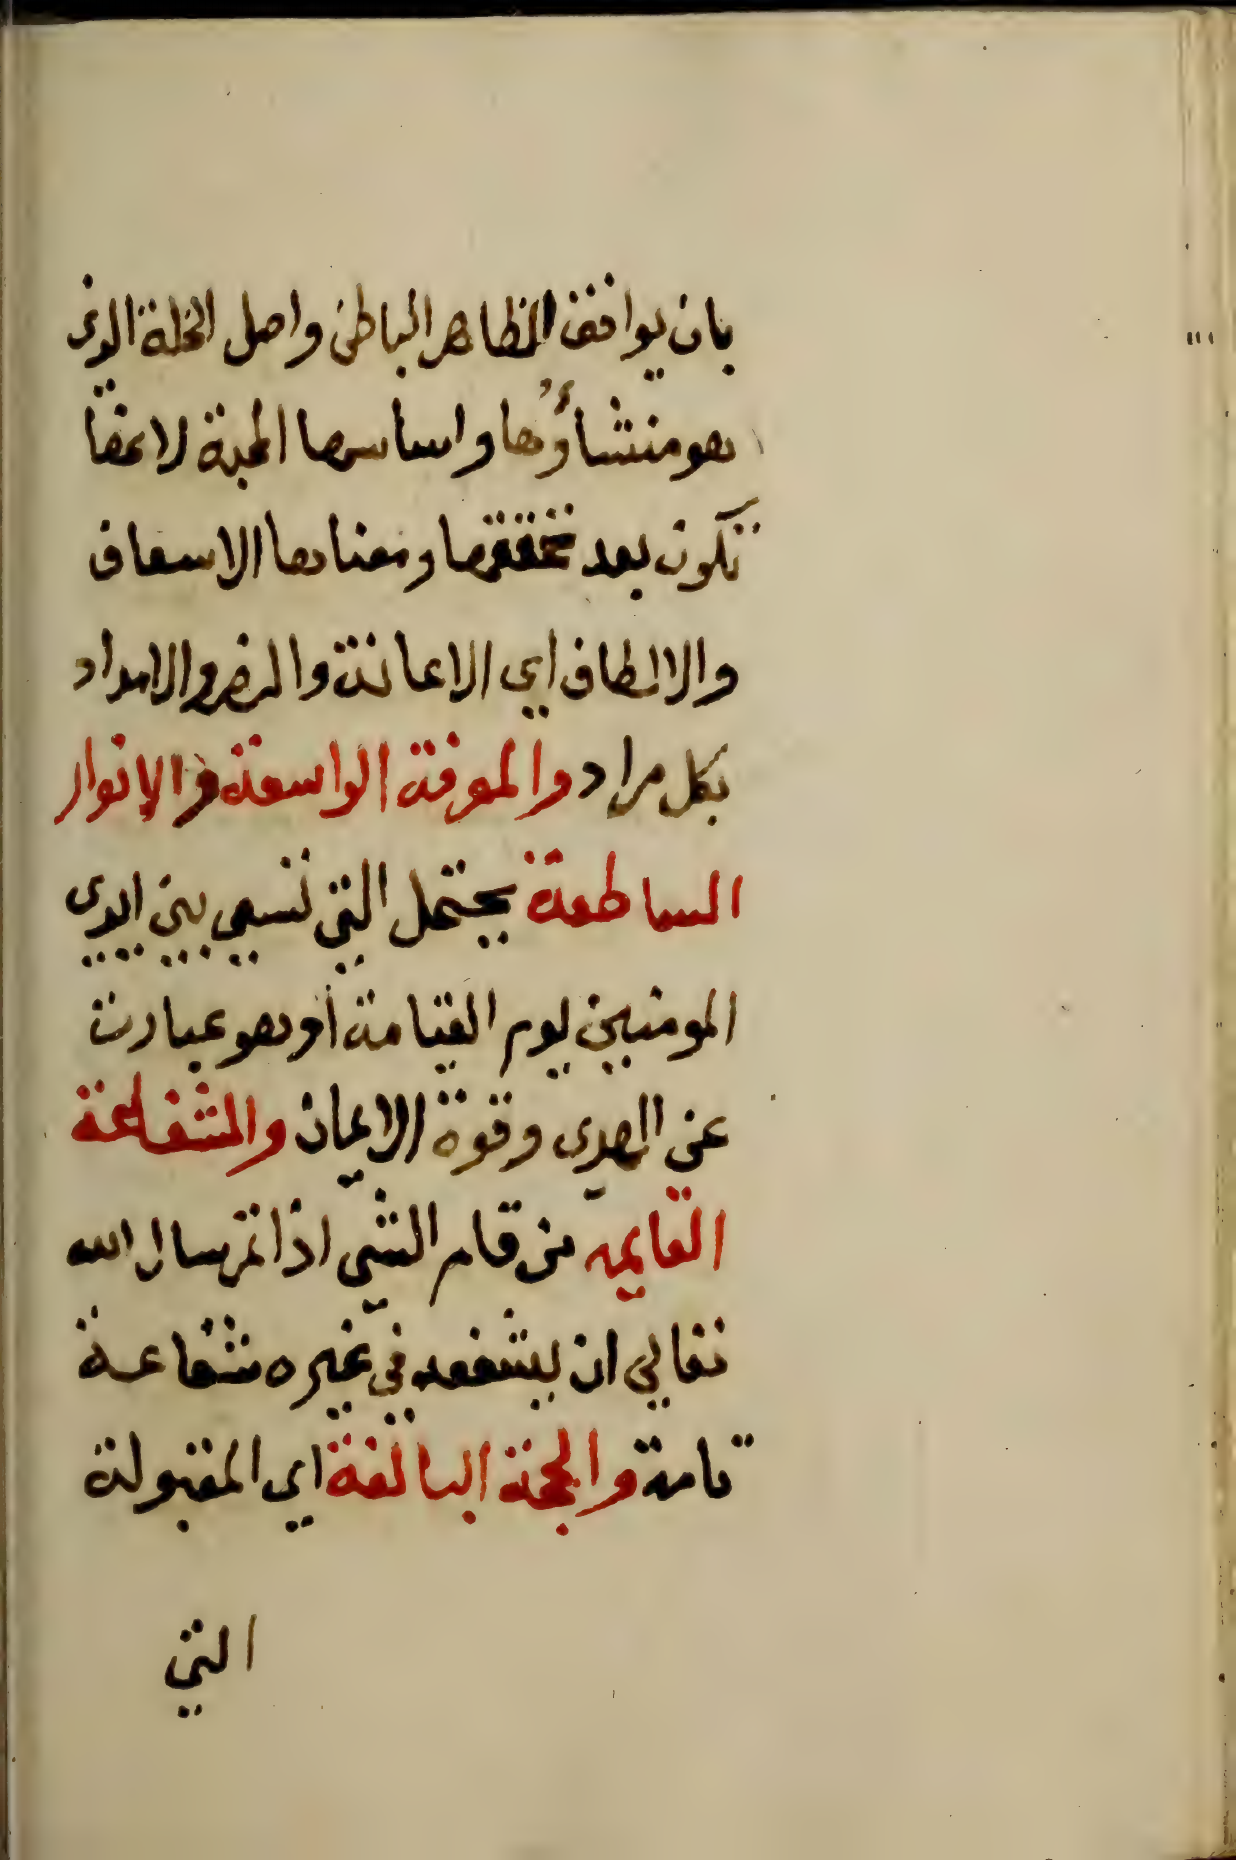 بان يوافق الظاهر الباطن واصل الخلة الذي
هو منشأوها واساسها المحبة لانها
تكون بعد تحققها ومعناها الاسعاف
والالطاف اي الاعانة والنصر والامداد
بكل مراد والمعرفة الواسعة والانوار
الساطعة يحتمل التي تسعي بين ايدي
المومنين يوم القيامة أو هو عبارت
عن الهدي وقوة الايمان والشفاعة
القايمه من قام الشي اذا تم بسال الله
تعالي ان يشفعه في غيره شفاعة
تامة والحجة البالغة اي المقبولة
التي